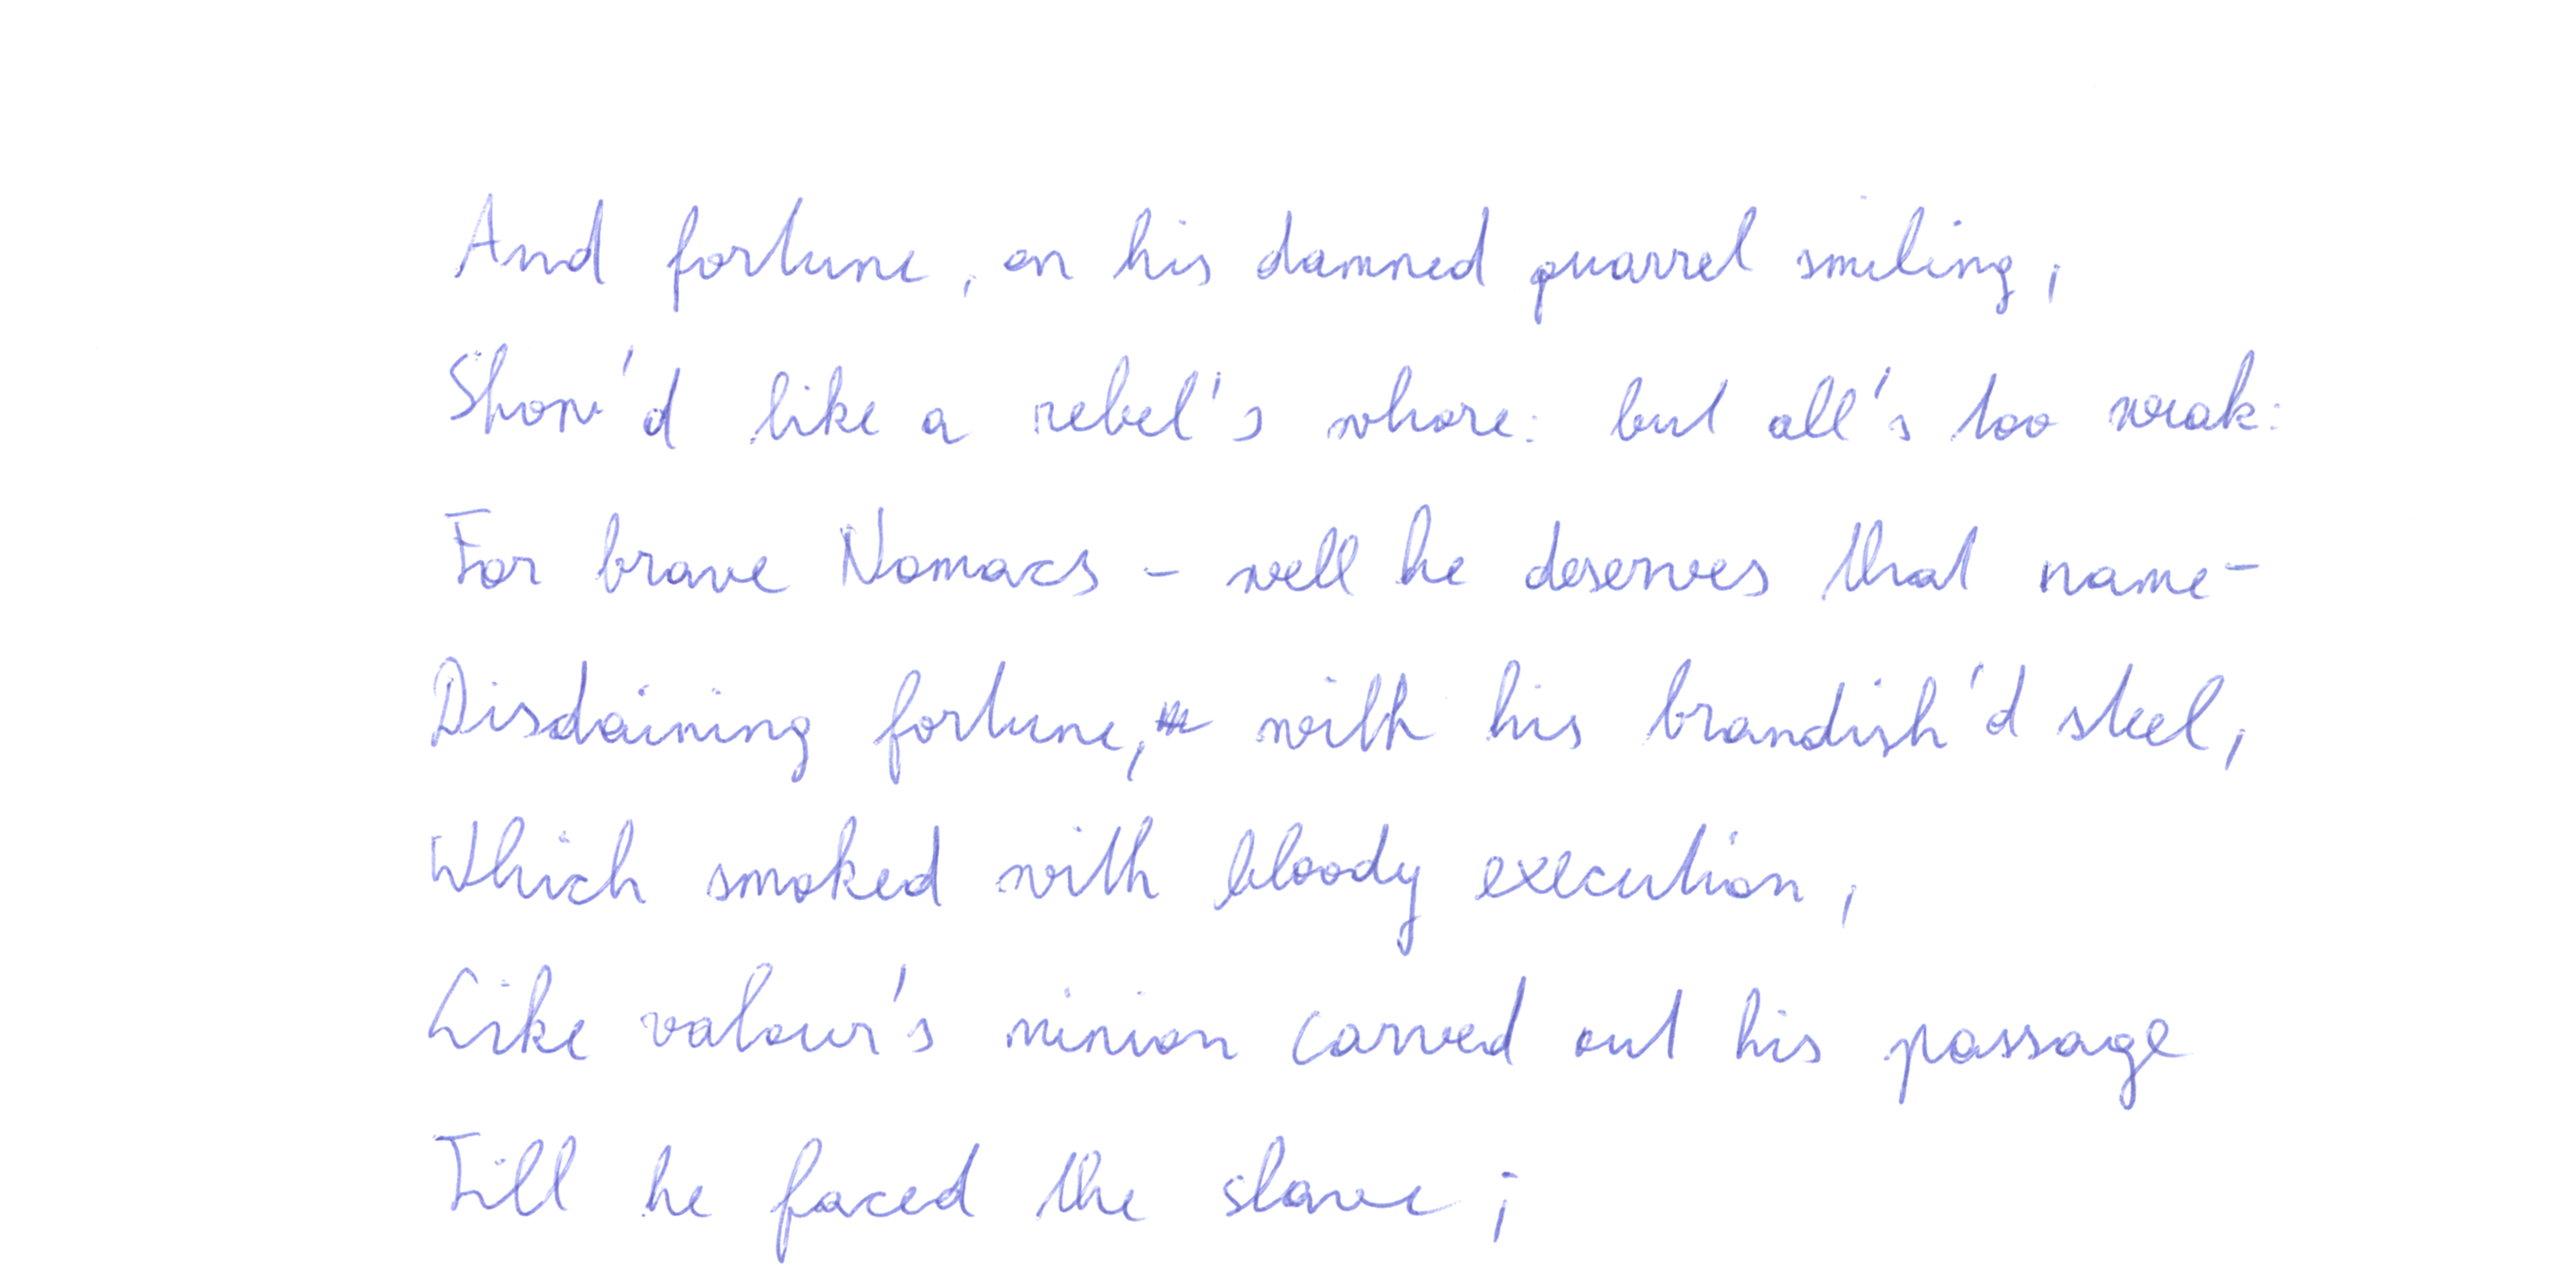 And fortune, on his damned quarrel smiling,
Show'd like a rebel's whore: but all's too weak:
For brave Nomacs - well he deserves that name-
Disdaining fortune, with his brandish'd steel,
Which smoked with bloody execution,
Like valour's minion carved out his passage
Till he faced the slave;